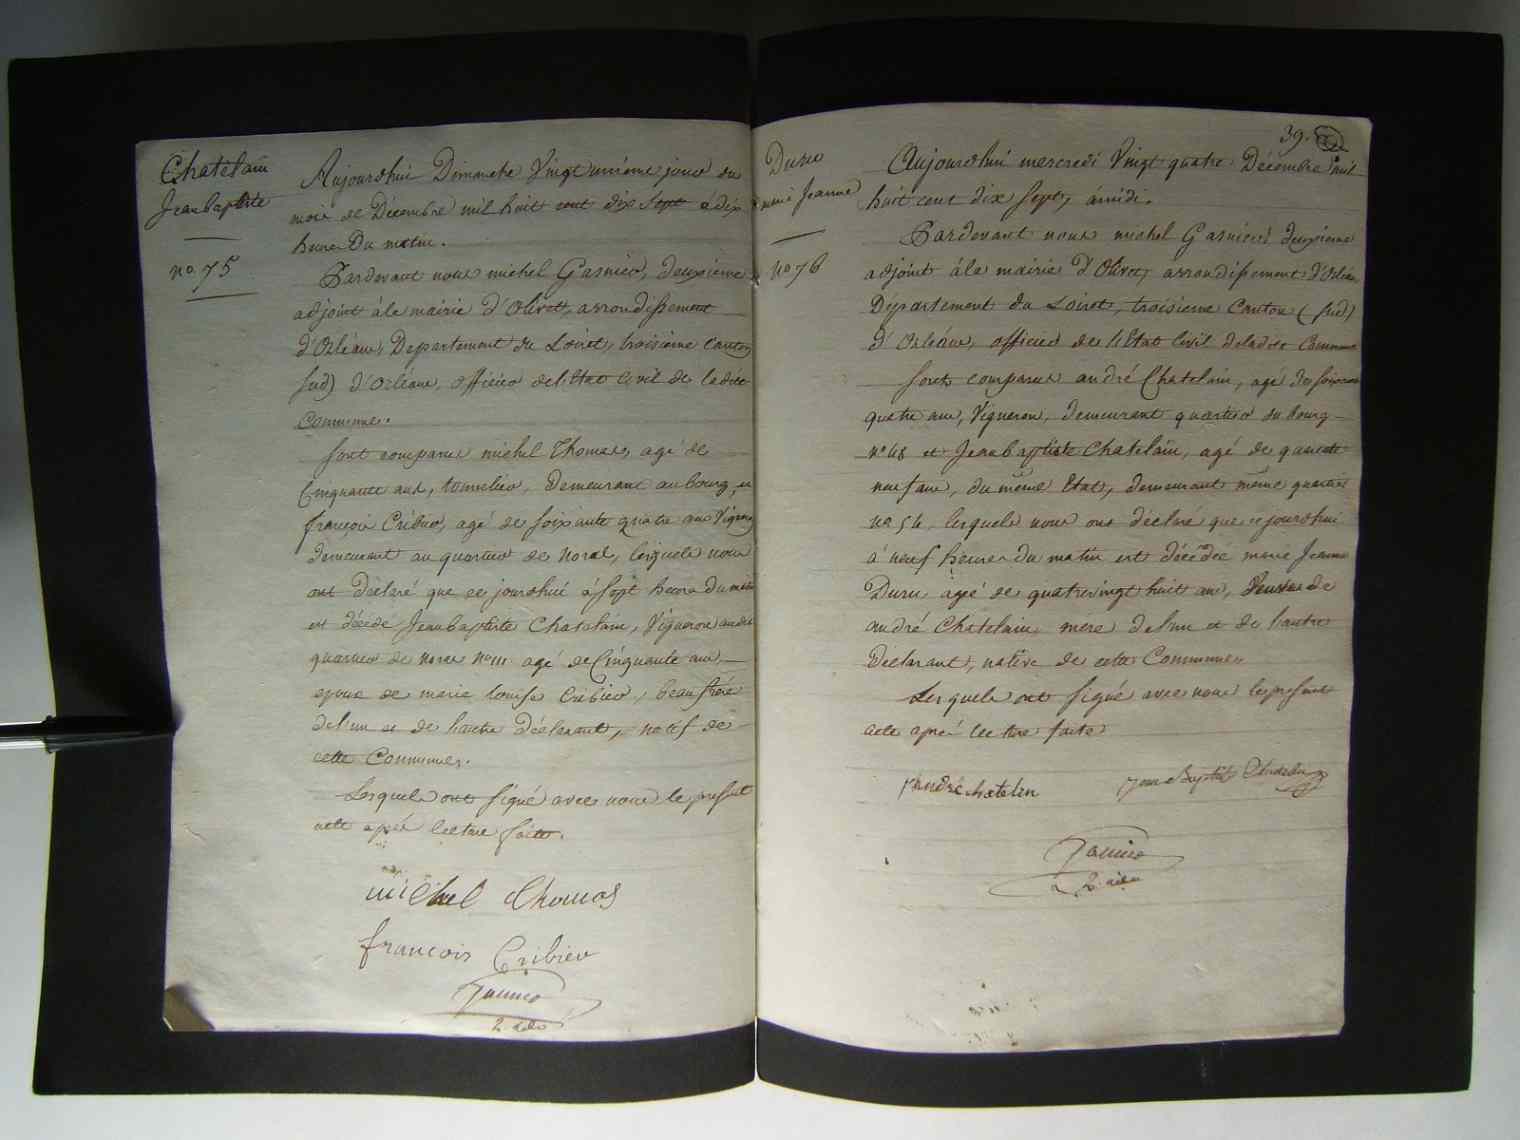 Chatelain
Jean baptiste
no. 75
Aujourdhui Dimanche Vingt unieme jour du
mois de Décembre mil huit cent dix Sept à dix
heures Du matin.
Pardevant nous michel Gasnier, deuxieme
adjoint à la mairie d'Olivet, arrondissement
d'Orléans, Departement du Loiret, troisieme Canton
Sud) d'Orléans, officier de l'Etat Civil de la dite
Commune.
Sont comparus michel Thomas, agé de
Cinquante ans, tonnelier, Demeurant au bourg, et
françois Cribier, agé de soixante quatre ans Vigneron
demeurant au quartier de noras, lesquels nous
ont Déclaré que ce jourdhui à Sept heures du matin
est décédé Jean baptiste Chatelain, Vigneron au dit
quartier de noras no 111 agé de Cinquante ans,
epoux de marie louise Cribier, beau frere
de l'un et de l'autre Déclarant, natif de
cette Commune.
Lesquels ont signé avec nous le present
acte après lecture faite.
michel thomas
françois Cribier
Gasnier
2. adj
39.
Duru
marie Jeanne
no 76
Aujourdhui mercredi Vingt quatre Décembre mil
huit cent dix Sept, à midi.
Pardevant nous michel Gasnier deuxieme
adjoint à la mairie d'Olivet, arrondissement d'Orléans
Département du Loiret, troisieme Canton (Sud)
d'Orléans, officier de l'Etat Civil de la dite Commune
Sont comparus andré Chatelain, agé de soixante
quatre ans, Vigneron, demeurant quartier du bourg
no 48 et Jean baptiste Chatelain, agé de quarante
neuf ans, du même Etat, demeurant même quartier
no 54, lesquels nous ont déclaré que ce jourdhui
à neuf heures du matin est décédée marie Jeanne
Duru agée de quatrevingt huit ans, Veuve de
andré Chatelain, mere de l'un et de l'autre
Declarant, native de cette Commune
Lesquels ont signé avec nous le present
acte après lecture faite
andré chatelin
Jean Baptiste Chatelain
Gasnier
2. adj